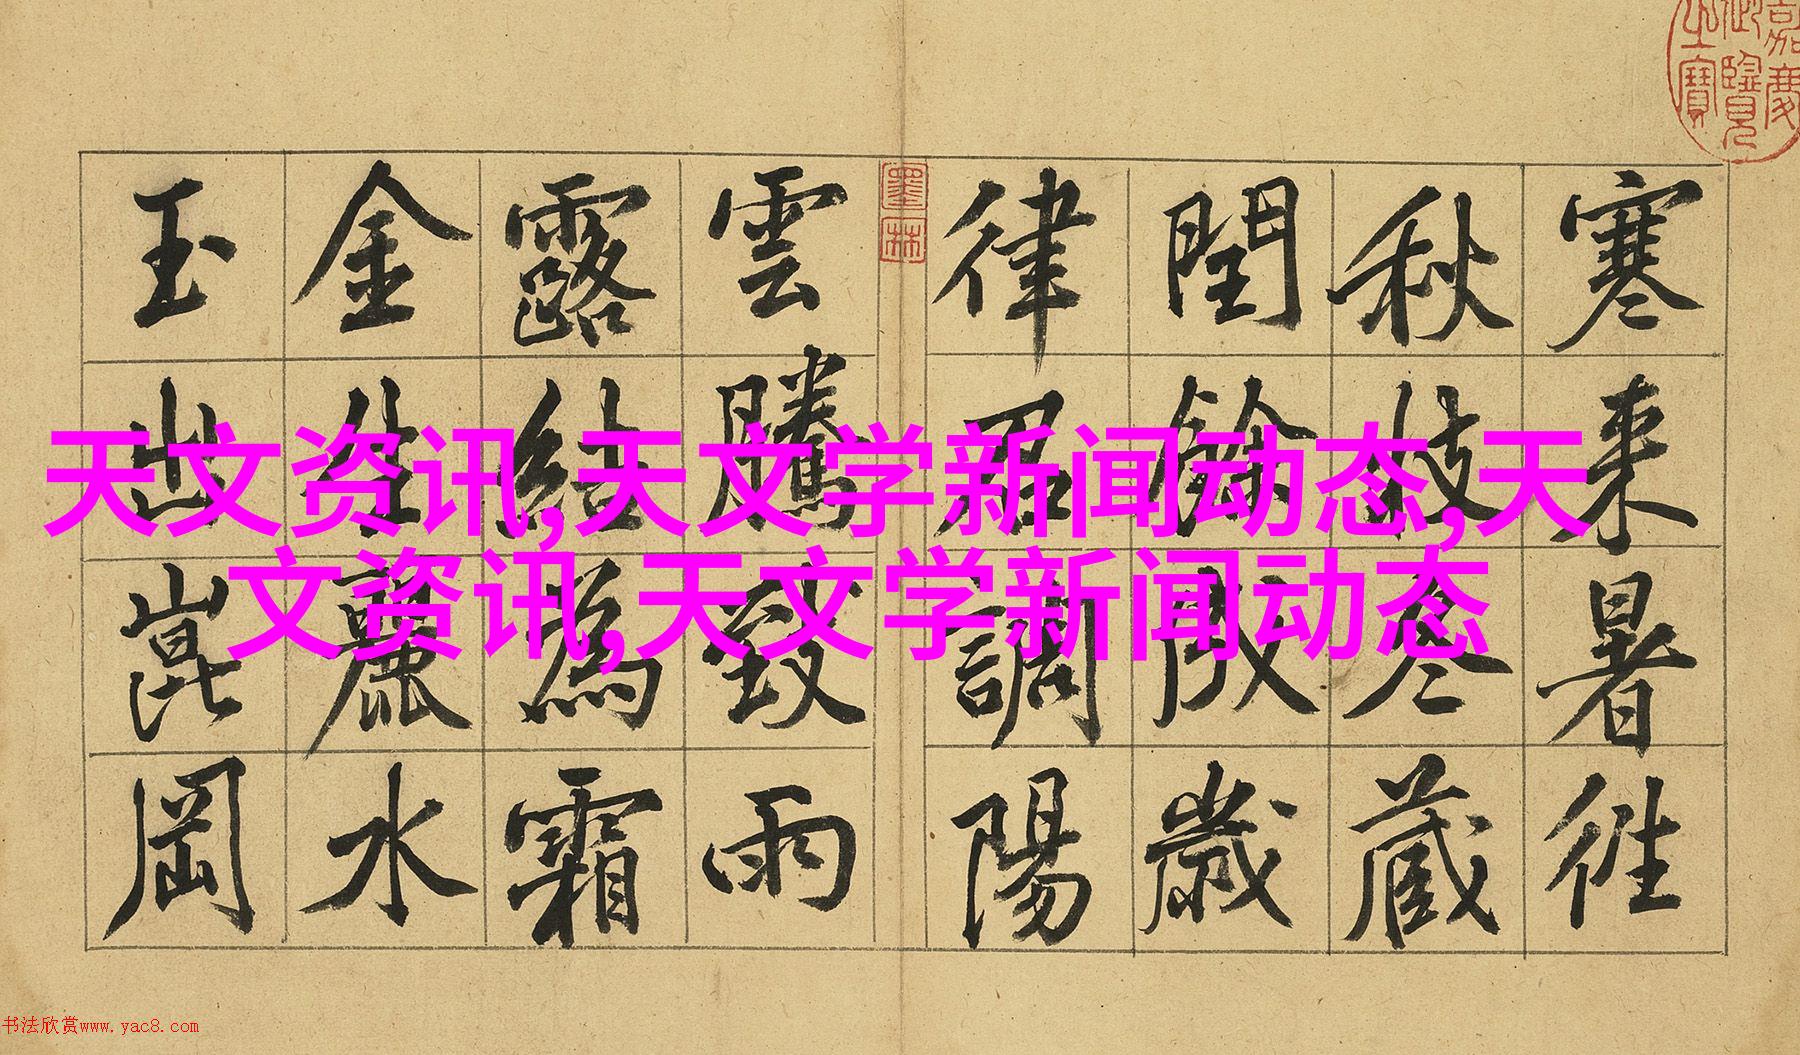 嘉慶
御覽
之寶
寒来暑徃
秋收冬蔵
閏餘成歲
律呂調陽
墨林
雲騰致雨
露結為霜
金生麗水
玉出崑岡
天文资讯,天文学新闻动态,天
文资讯,天文学新闻动态
书法欣赏www.yac8.com